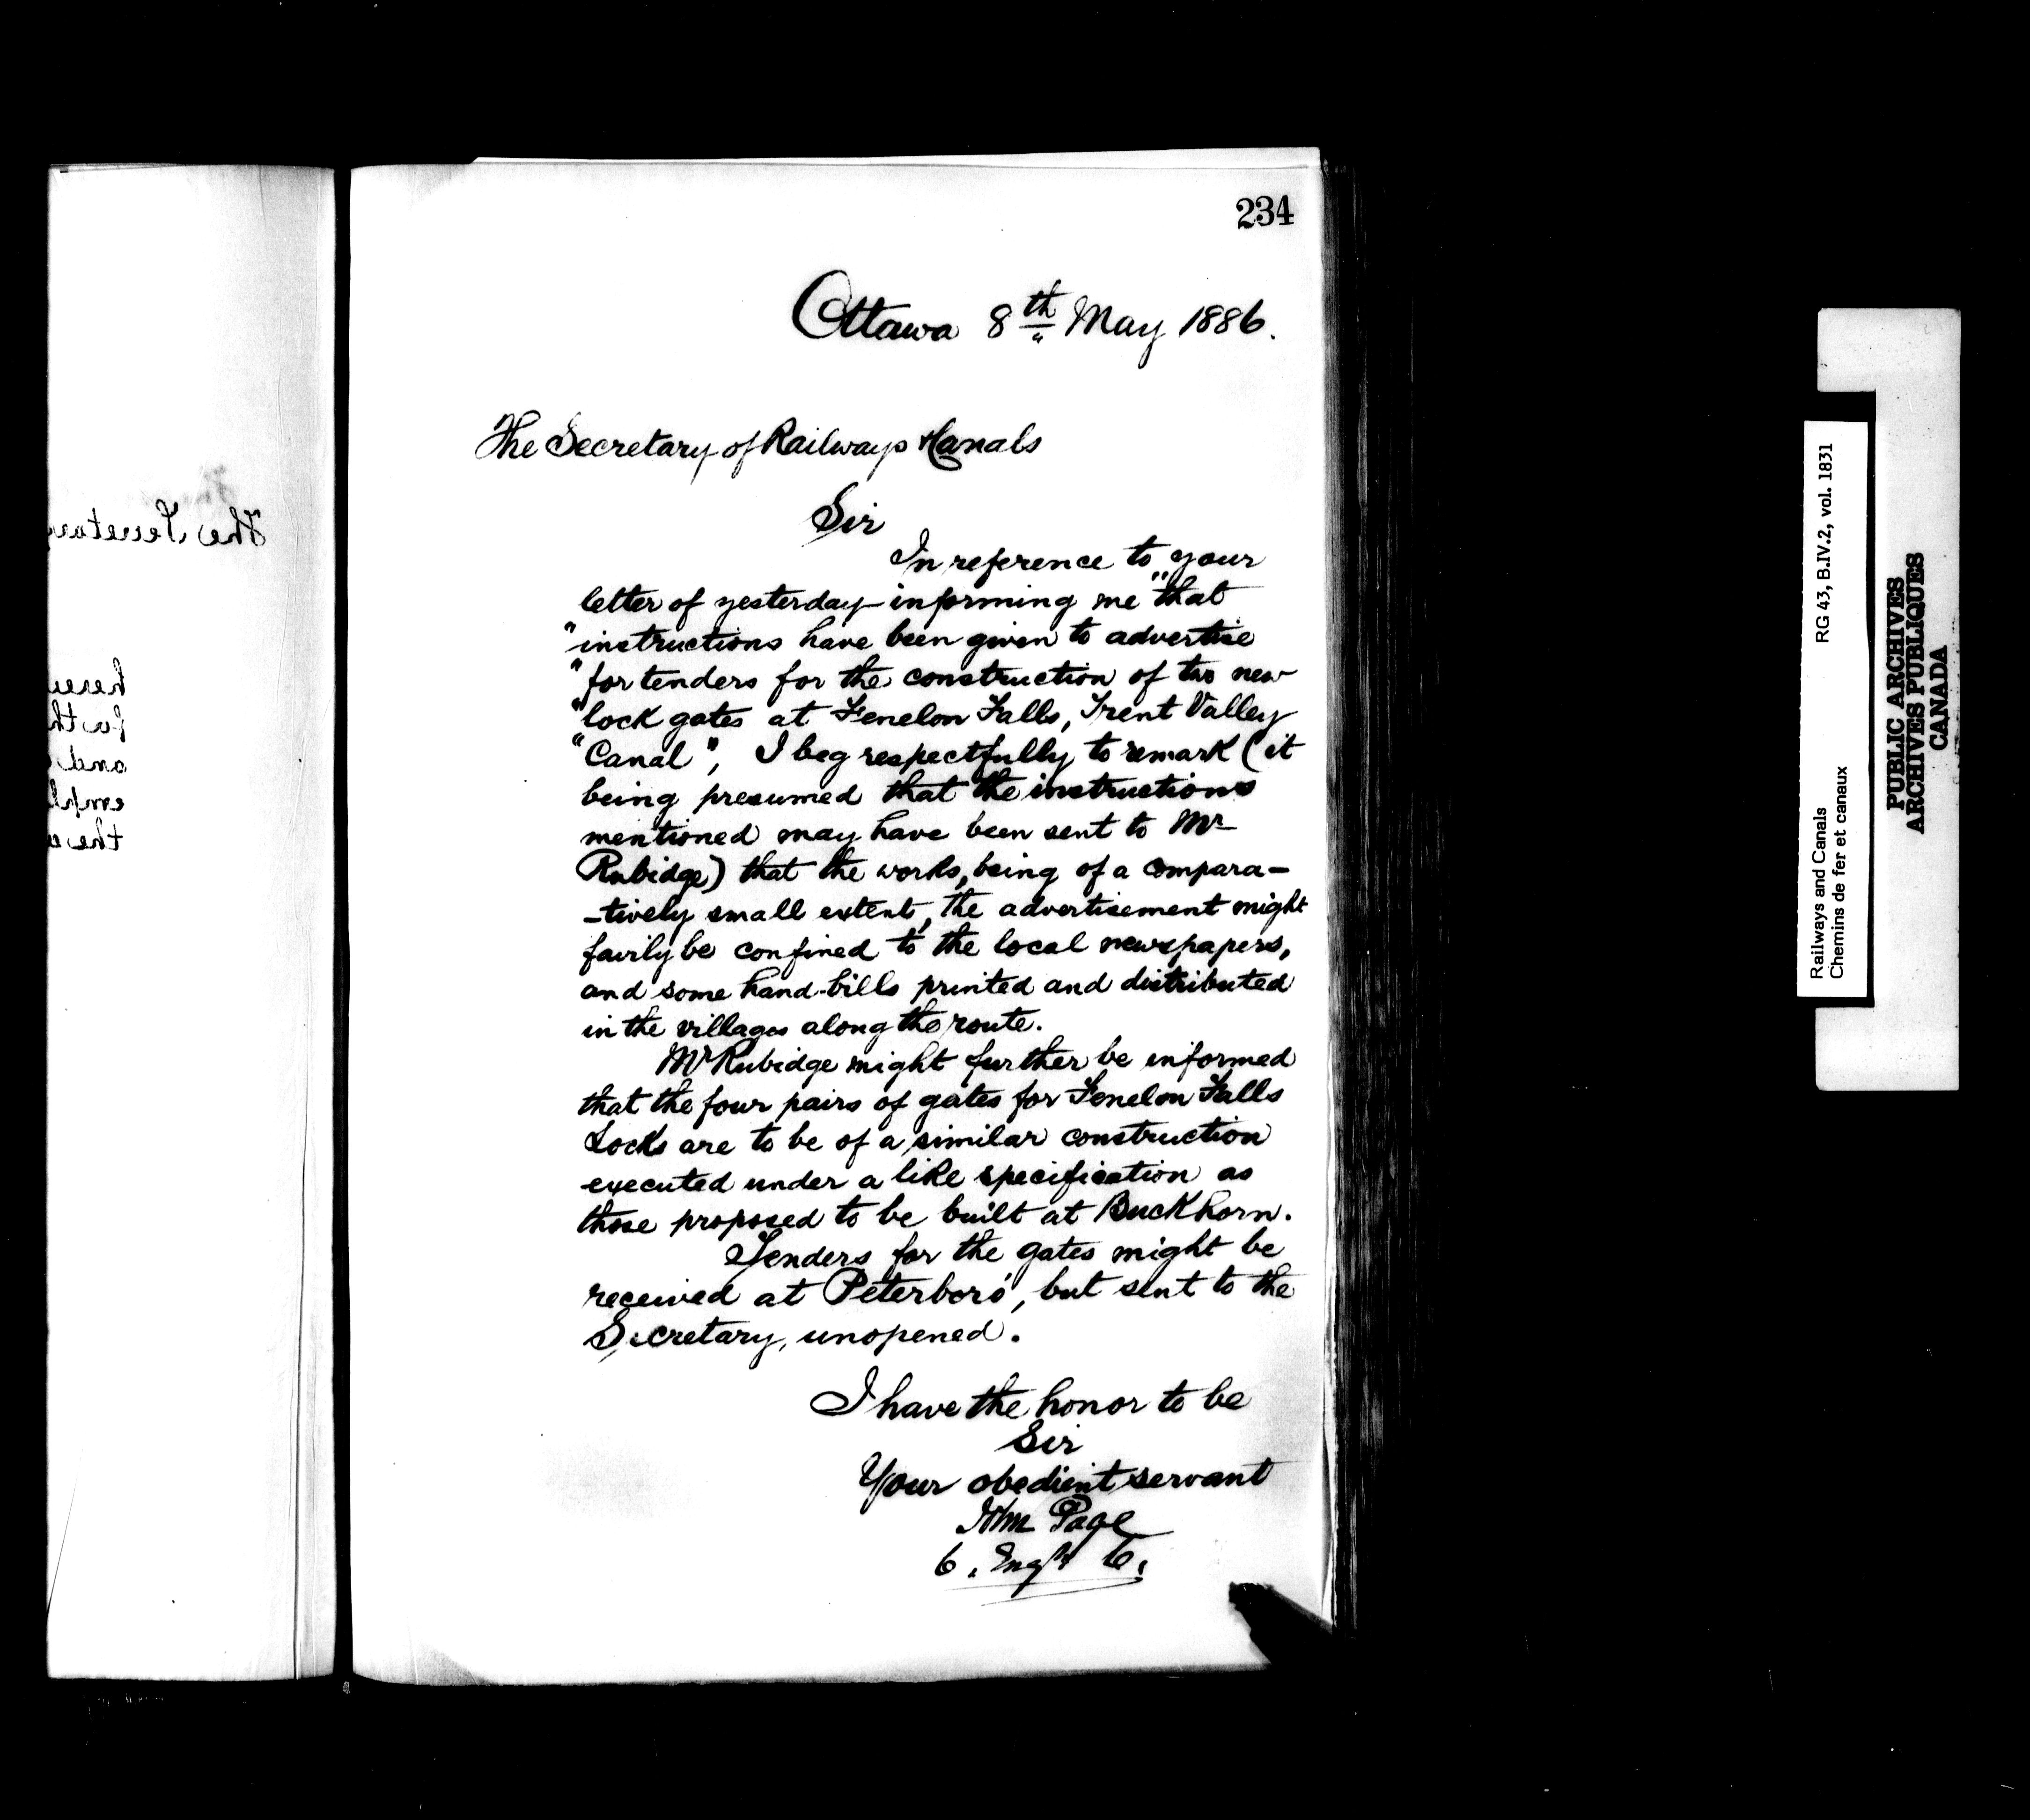 234
Ottawa 8th May 1886.
The Secretary of Railways & Canals
Sir
In reference to your
letter of yesterday informing me "that
"instructions have been given to advertise
"for tenders for the construction of two new
"lock gates at Fenelon Falls, Trent Valley
"Canal", I beg respectfully to remark (it
being presumed that the instructions
mentioned may have been sent to Mr
Rubidge) that the works, being of a compara-
-tively small extent, the advertisement might
fairly be confined to the local newspapers,
and some hand-bills printed and distributed
in the villages along the route.
Mr Rubidge might further be informed
that the four pairs of gates for Fenelon Falls
Locks are to be of a similar construction
executed under a like specification as
those proposed to be built at Buckhorn.
Tenders for the gates might be
received at Peterboro', but sent to the
Secretary, unopened.
I have the honor to be
Sir
Your obedient servant
John Page
C. Engr C.
The Secretary
and
the
Railways and Canals RG 43, B.IV.2, vol. 1831
Chemins de fer et canaux
PUBLIC ARCHIVES
ARCHIVES PUBLIQUES
CANADA